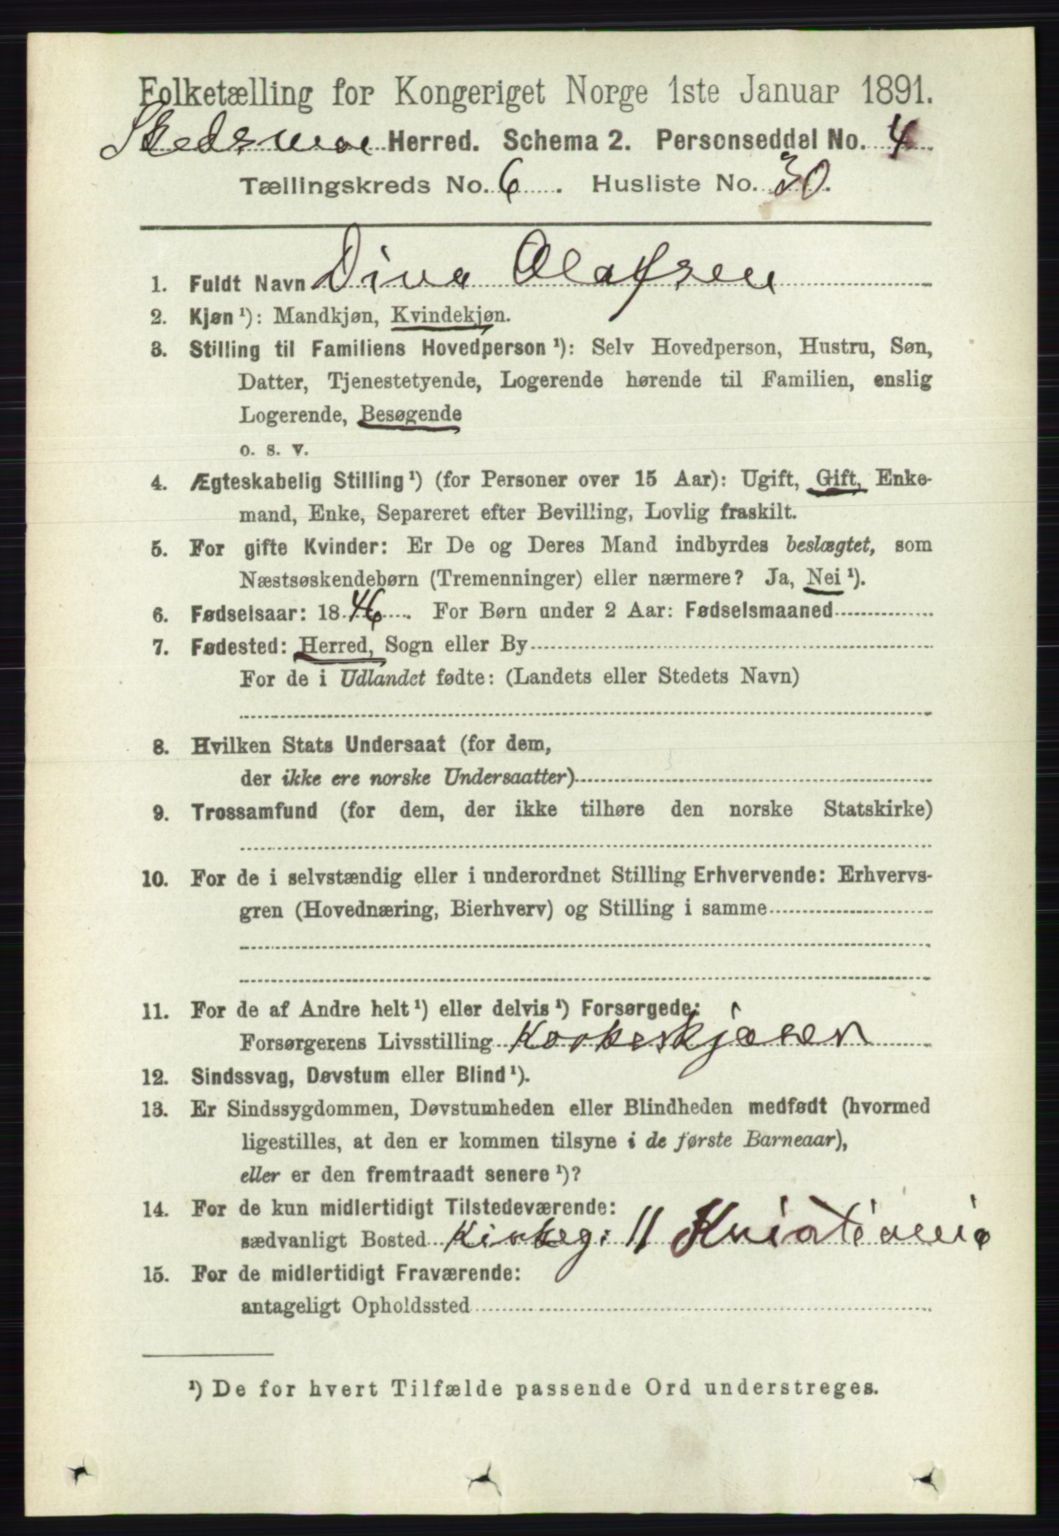 Folketælling for Kongeriget Norge 1ste Januar 1891.
Skedsmoe Herred. Schema 2. Personseddel No. 4.
Tællingskreds No. 6. Husliste No. 30.
1. Fuldt Navn Dina Olafsen
2. Kjøn ¹): Mandkjøn, Kvindekjøn.
3. Stilling til Familiens Hovedperson ¹): Selv Hovedperson, Hustru, Søn,
Datter, Tjenestetyende, Logerende hørende til Familien, enslig
Logerende, Besøgende
o. s. v.
4. Ægteskabelig Stilling ¹) (for Personer over 15 Aar): Ugift, Gift, Enke-
mand, Enke, Separeret efter Bevilling, Lovlig fraskilt.
5. For gifte Kvinder: Er De og Deres Mand indbyrdes beslægtet, som
Næstsøskendebørn (Tremenninger) eller nærmere? Ja, Nei ¹).
6. Fødselsaar: 1846. For Børn under 2 Aar: Fødselsmaaned
7. Fødested: Herred, Sogn eller By
For de i Udlandet fødte: (Landets eller Stedets Navn)
8. Hvilken Stats Undersaat (for dem,
der ikke ere norske Undersaatter)
9. Trossamfund (for dem, der ikke tilhøre den norske Statskirke)
10. For de i selvstændig eller i underordnet Stilling Erhvervende: Erhvervs-
gren (Hovednæring, Bierhverv) og Stilling i samme
11. For de af Andre helt ¹) eller delvis ¹) Forsørgede:
Forsørgerens Livsstilling
12. Sindssvag, Døvstum eller Blind ¹).
13. Er Sindssygdommen, Døvstumheden eller Blindheden medfødt (hvormed
ligestilles, at den er kommen tilsyne i de første Barneaar),
eller er den fremtraadt senere ¹)?
14. For de kun midlertidigt Tilstedeværende:
sædvanligt Bosted Kirkeg: 11 Kristiania
15. For de midlertidigt Fraværende:
antageligt Opholdssted
¹) De for hvert Tilfælde passende Ord understreges.